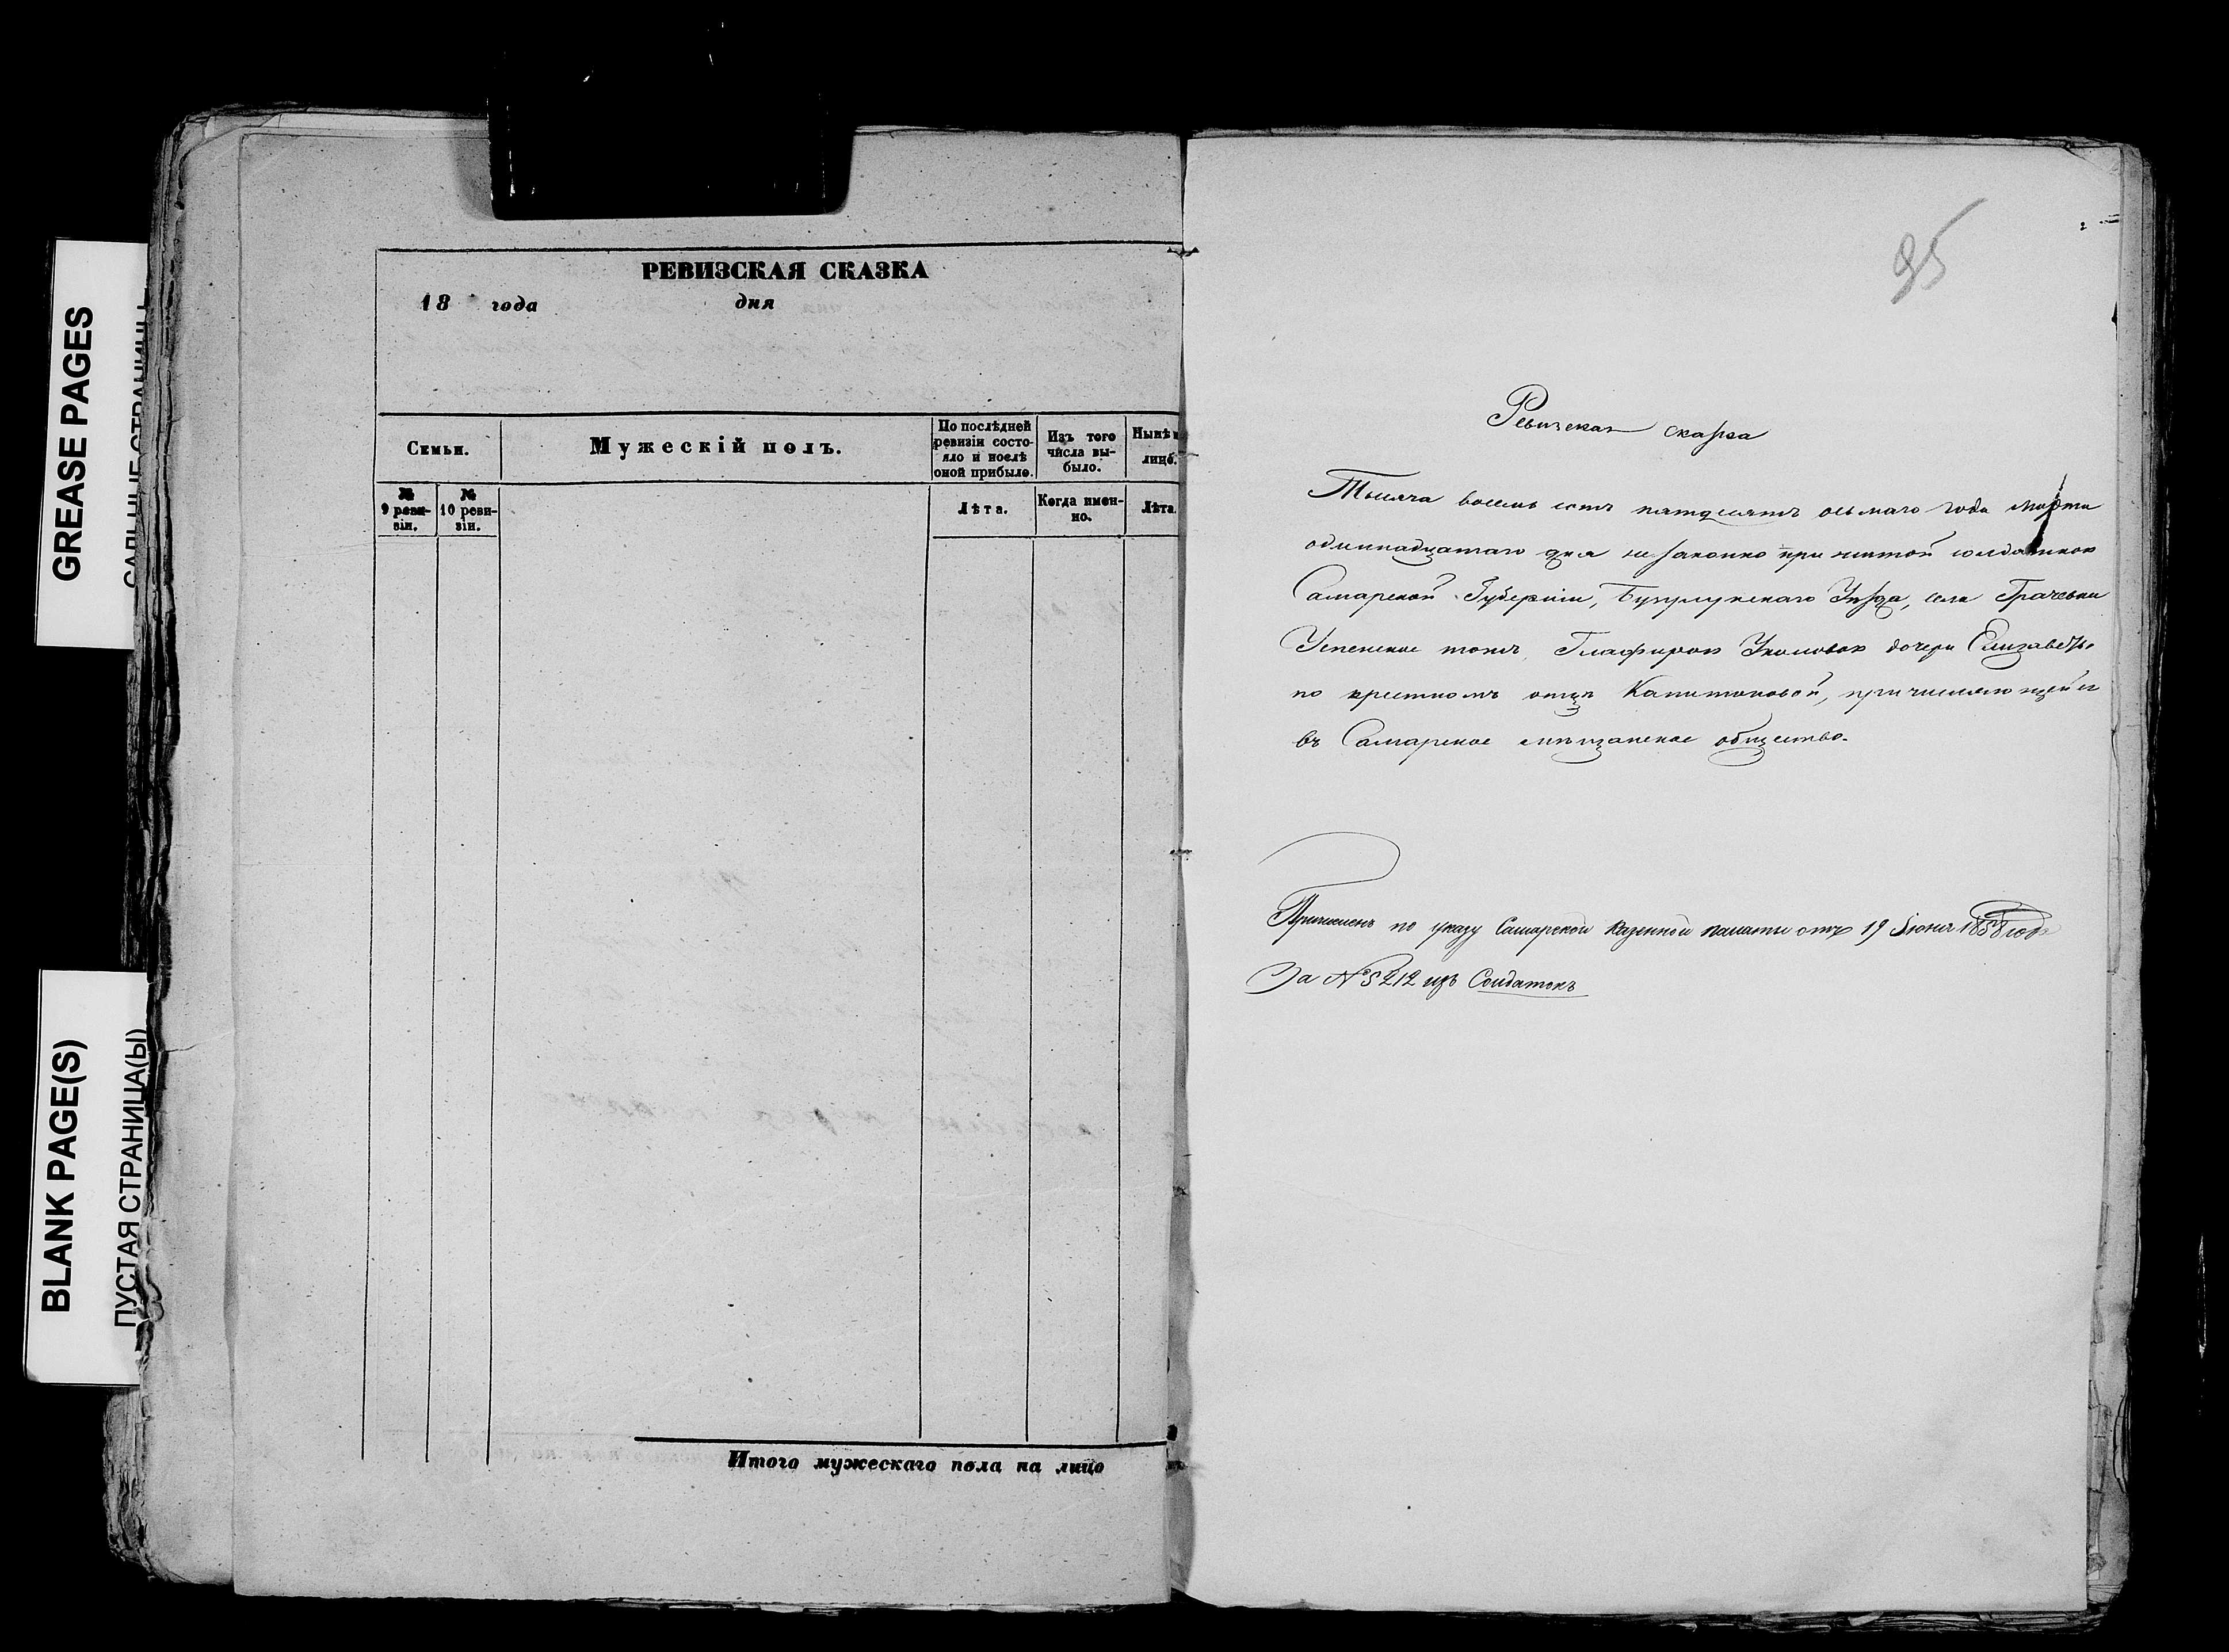 GREASE PAGES
САЛЬНЫЕ СТРАНИЦЫ
BLANK PAGE(S)
ПУСТАЯ СТРАНИЦА(Ы)
РЕВИЗСКАЯ СКАЗКА
18 года дня
Семьи.
Мужескій полъ.
По послѣдней ревизіи состояло и послѣ оной прибыло.
Изъ того числа выбыло.
Нынѣ
лицо.
№ 9 ревизіи.
№ 10 ревизіи.
Лѣта.
Когда именно.
Лѣта.
Итого мужескаго пола на лицо
95
Ревизская сказка
Тысяча восемь сотъ пятдесятъ осьмаго года марта
одиннадцатаго дня незаконно прижитой солдаткою
Самарской Губерніи, Бузулукскаго Уѣзда, села Грачевки
Успенское тожъ, Глафирою Уколовою дочери Елизаветѣ,
по крестномъ отцѣ Капитоновой, причисляющейся
въ Самарское мѣщанское общество.
Причисленъ по указу Самарской Казенной палаты отъ 19 Іюня 1858 года
За № 5212 изъ Солдатокъ